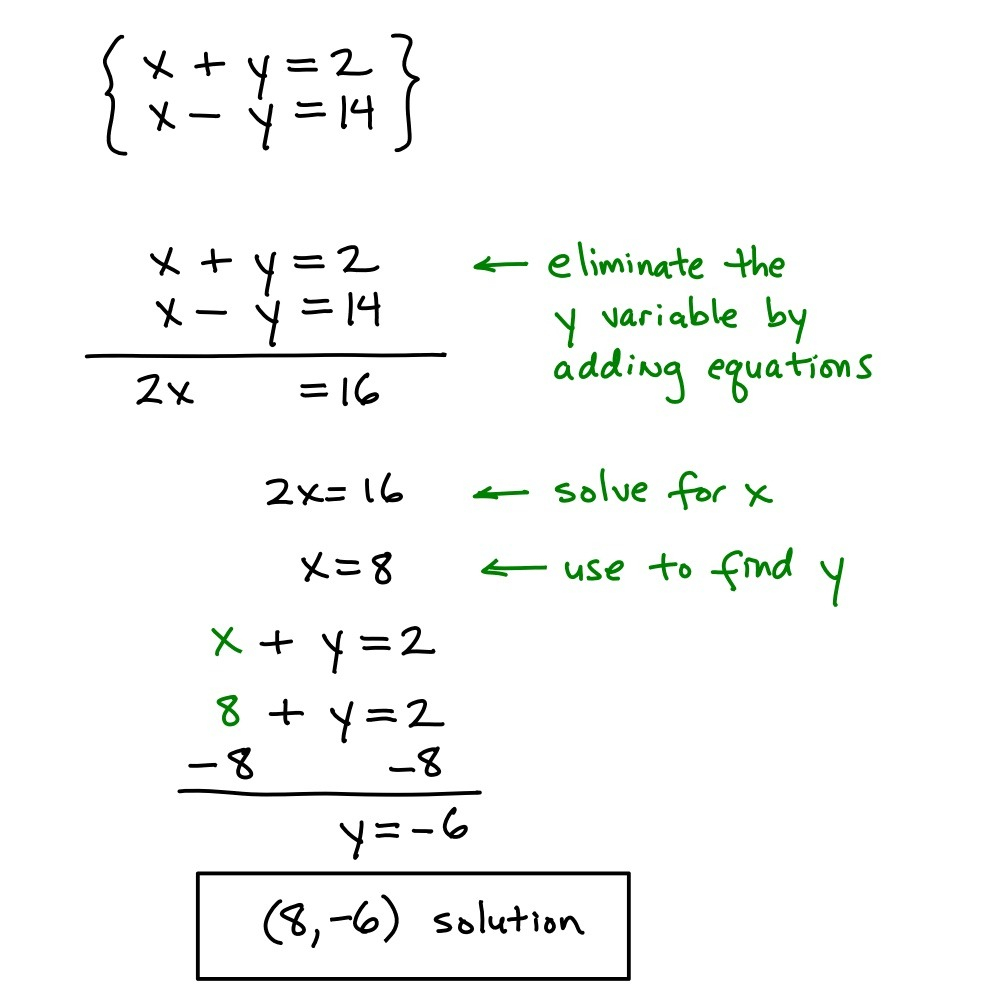 { x + y = 2
x - y = 14 }
x + y = 2 ← eliminate the
x - y = 14 y variable by
adding equations
2x = 16
2x = 16 ← solve for x
x = 8 ← use to find y
x + y = 2
8 + y = 2
-8 -8
y = -6
(8,-6) solution